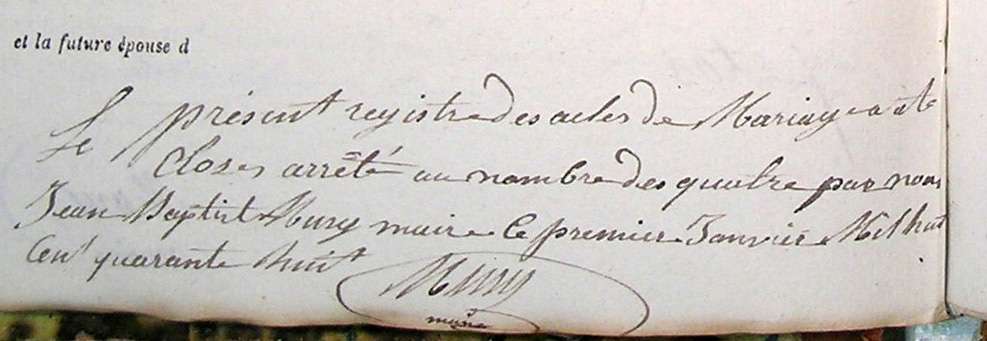 et la future épouse d
Le présent registre des actes de Mariage a été
Clos et arrêté au nombre de quatre par nous
Jean Baptist Mury maire le premier Janvier Mil huit
Cent quarante huit
Mury
maire